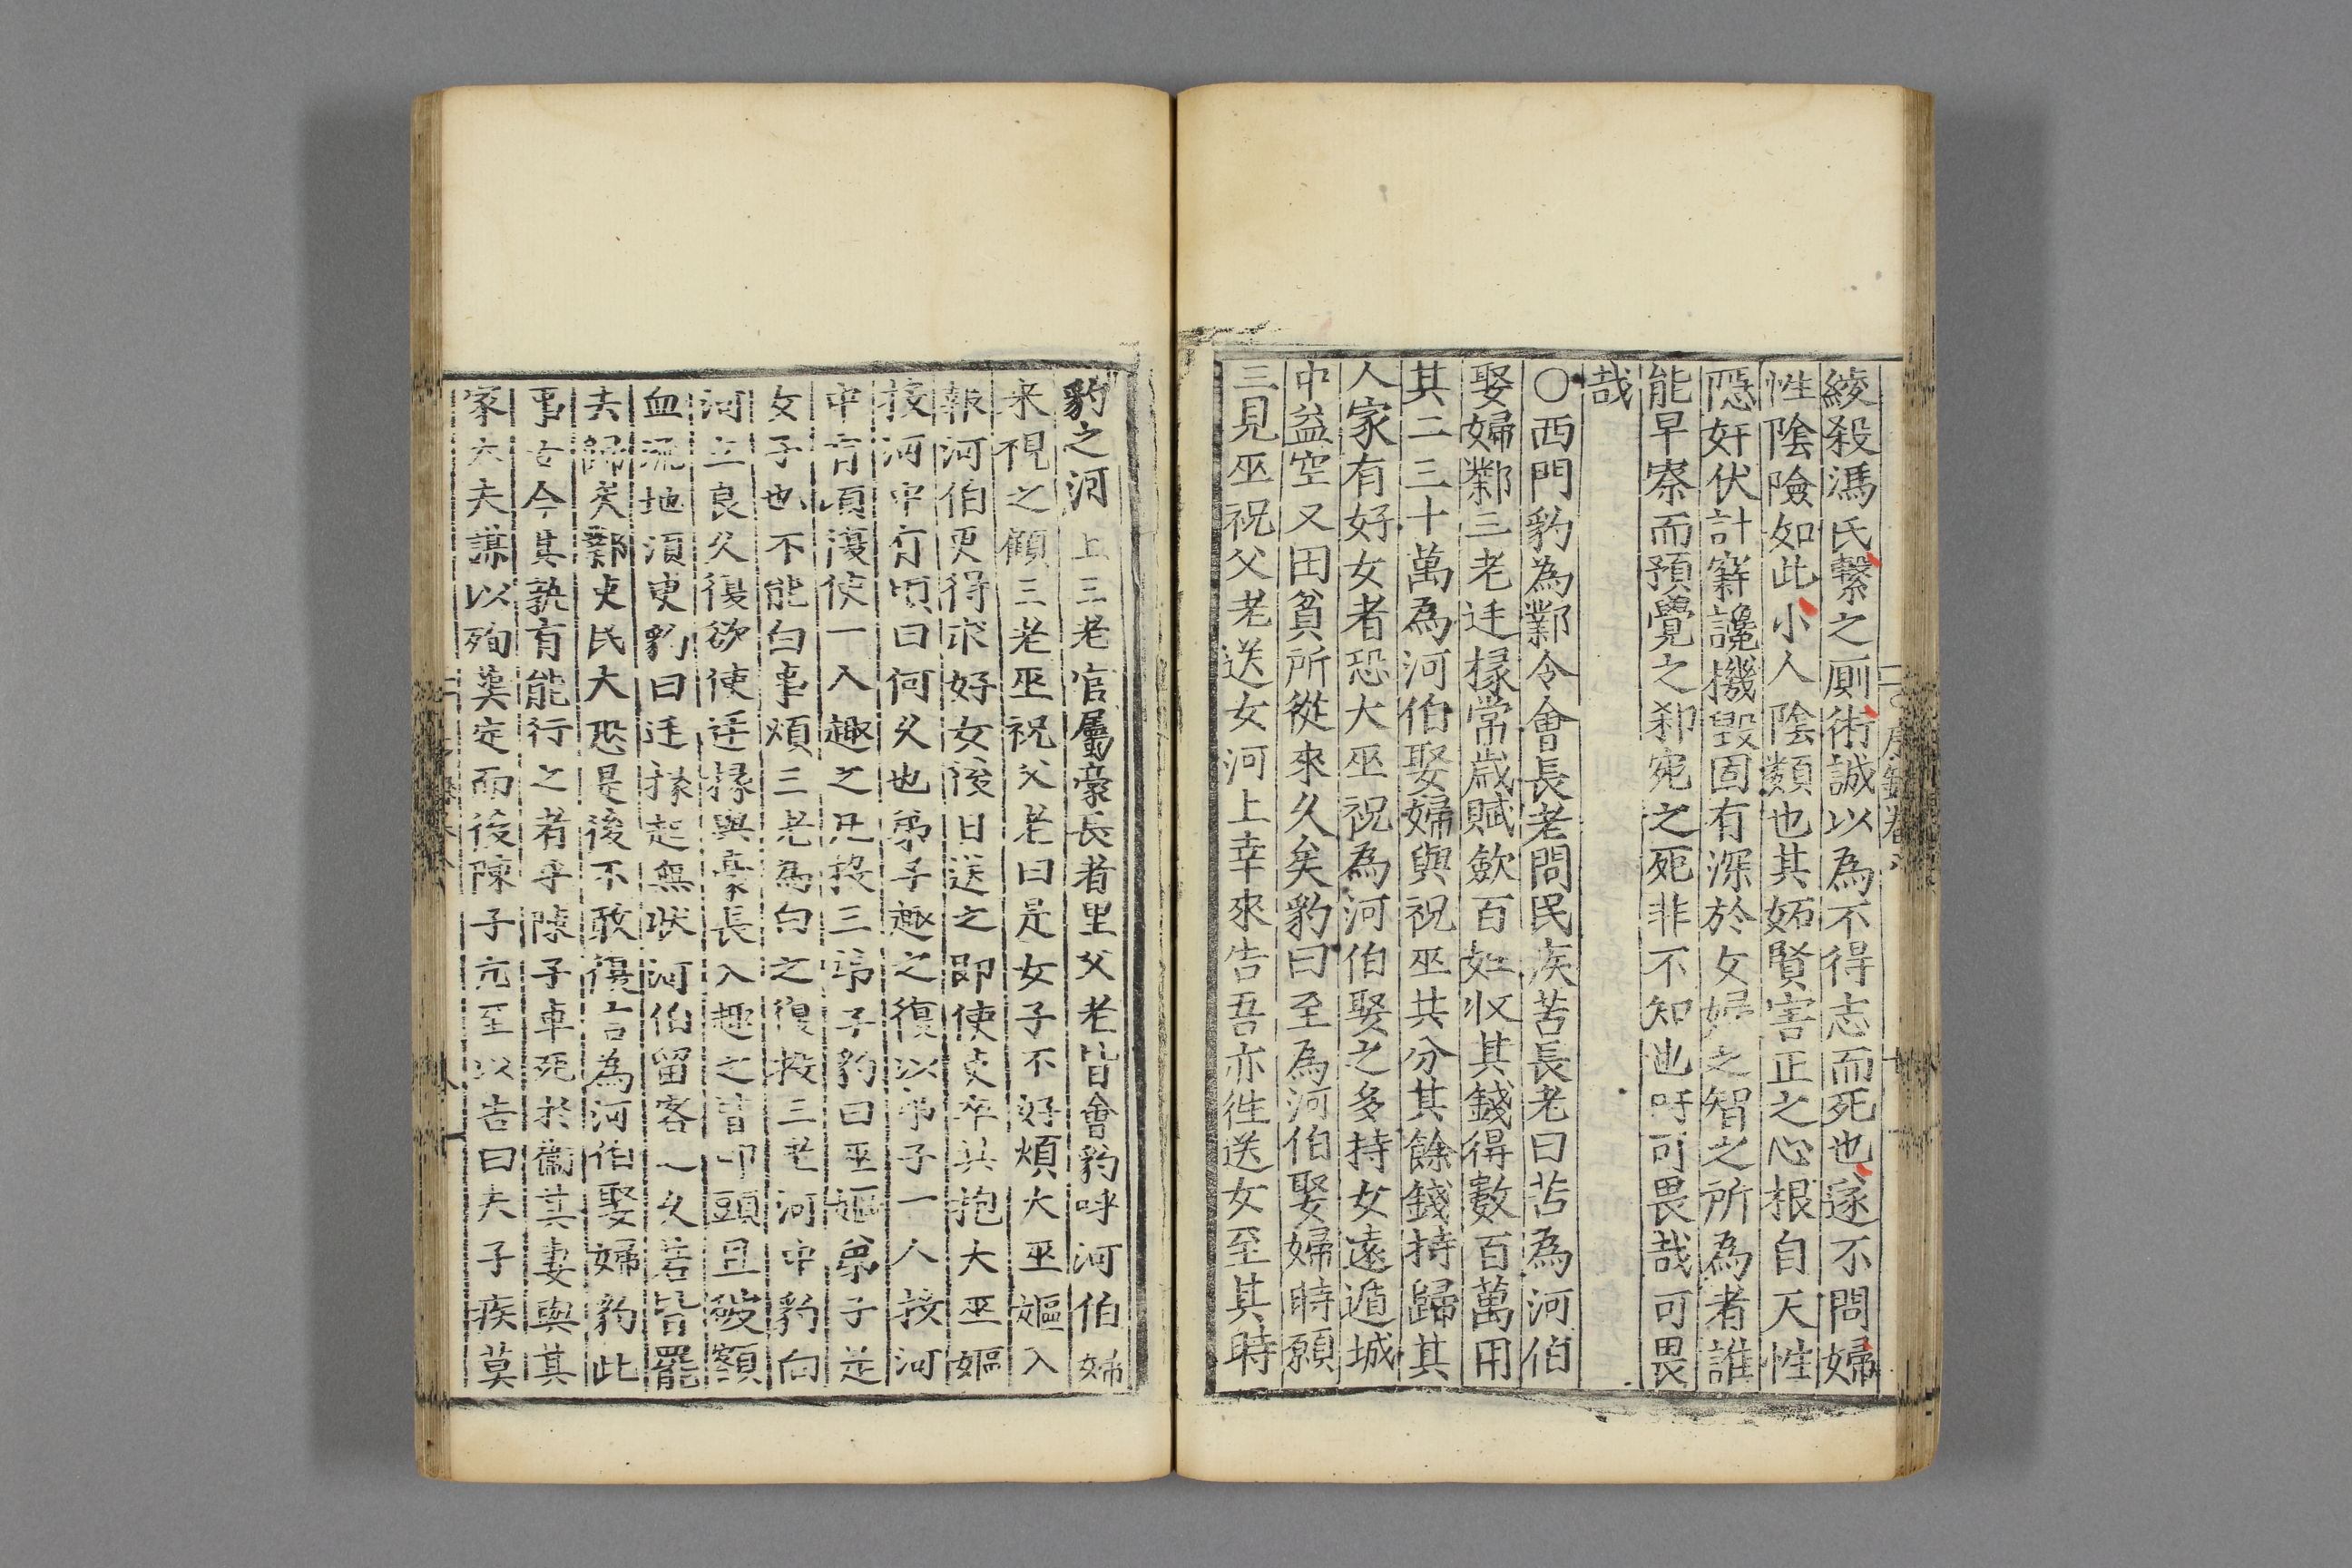 綾殺馮氏繫之厠術誠以為不得志而死也遂不問婦
性陰險如此小人陰類也其妬賢害正之心根自天性
隱奸伏計穽讒機毀固有深於女婦之智之所為者誰
能早察而預覺之邪宛之死非不知也吁可畏哉可畏
哉
○西門豹為鄴令會長老問民疾苦長老曰苦為河伯
娶婦鄴三老廷掾常歲賦歛百姓收其錢得數百萬用
其二三十萬為河伯娶婦與祝巫共分其餘錢持歸其
人家有好女者恐大巫祝為河伯娶之多持女遠遁城
中益空又田貧所從來久矣豹曰至為河伯娶婦時願
三見巫祝父老送女河上幸來告吾亦徃送女至其時
豹之河上三老官屬豪長者里父老皆會豹呼河伯婦
来視之顧三老巫祝父老曰是女子不好煩大巫嫗入
報河伯更得求好女後日送之即使吏卒共抱大巫嫗
投河中有頃曰何久也弟子趣之復以弟子一人投河
中有頃復使一入趣之凡投三弟子豹曰巫嫗弟子是
女子也不能白事煩三老為白之復投三老河中豹向
河立良久復欲使廷掾與豪長入趣之皆叩頭且破額
血流地須臾豹曰廷掾起無狀河伯留客之久若皆罷
去歸矣鄴吏民大恐是後不敢復言為河伯娶婦豹此
事古今其孰有能行之者乎陳子車死於衞其妻與其
家大夫謀以殉葬定而後陳子亢至以告曰夫子疾莫